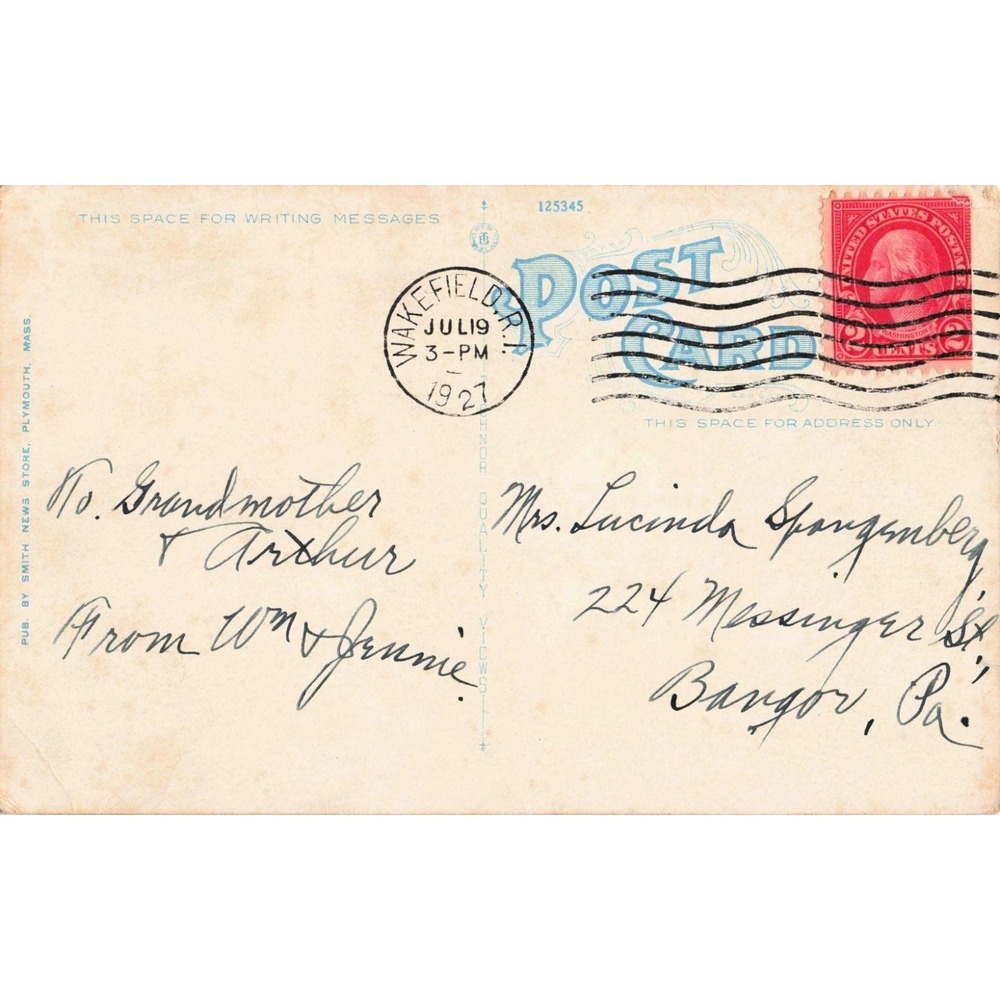 THIS SPACE FOR WRITING MESSAGES
125345
POST
CARD
UNITED STATES POSTAGE
WASHINGTON
2 CENTS 2
WAKEFIELD, R.I.
JUL 19
3-PM
1927
THIS SPACE FOR ADDRESS ONLY
PUB. BY SMITH NEWS STORE, PLYMOUTH, MASS.
QUALITY VIEWS
To. Grandmother
& Arthur
From Wm & Jennie.
Mrs. Lucinda Spangenberg,
224 Messinger St.,
Bangor, Pa.